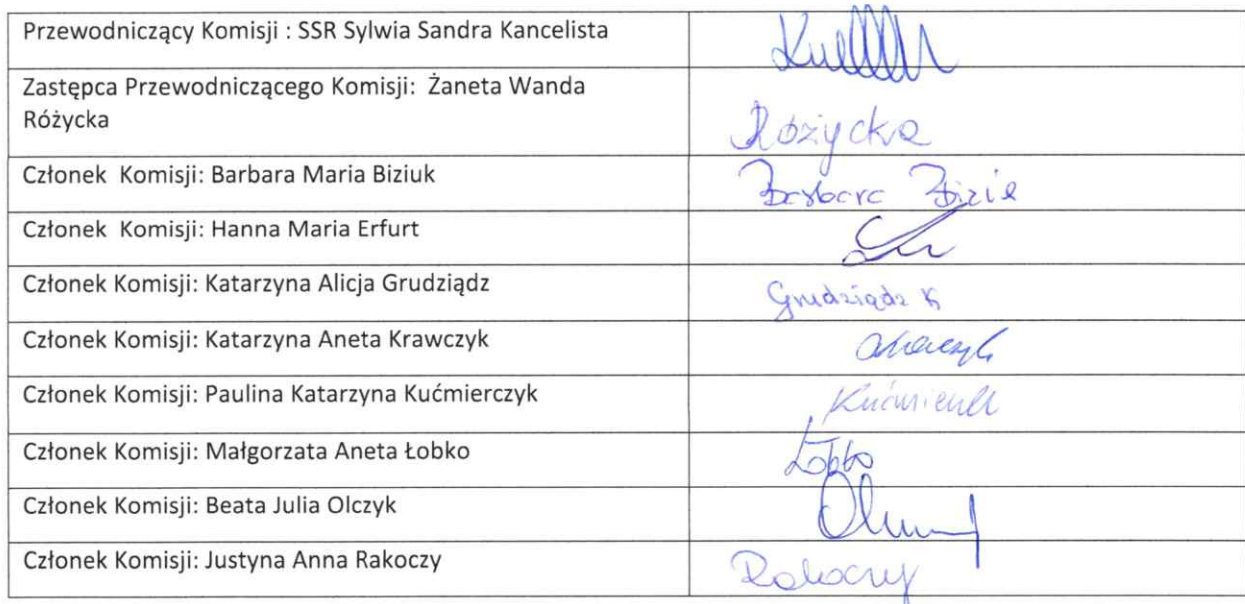 Przewodniczący Komisji : SSR Sylwia Sandra Kancelista
Zastępca Przewodniczącego Komisji: Żaneta Wanda
Różycka
Różycka
Członek Komisji: Barbara Maria Biziuk
Barbara
Członek Komisji: Hanna Maria Erfurt
Członek Komisji: Katarzyna Alicja Grudziądz
Grudziądz K
Członek Komisji: Katarzyna Aneta Krawczyk
Członek Komisji: Paulina Katarzyna Kućmierczyk
Członek Komisji: Małgorzata Aneta Łobko
Łobko
Członek Komisji: Beata Julia Olczyk
Członek Komisji: Justyna Anna Rakoczy
Rakoczy